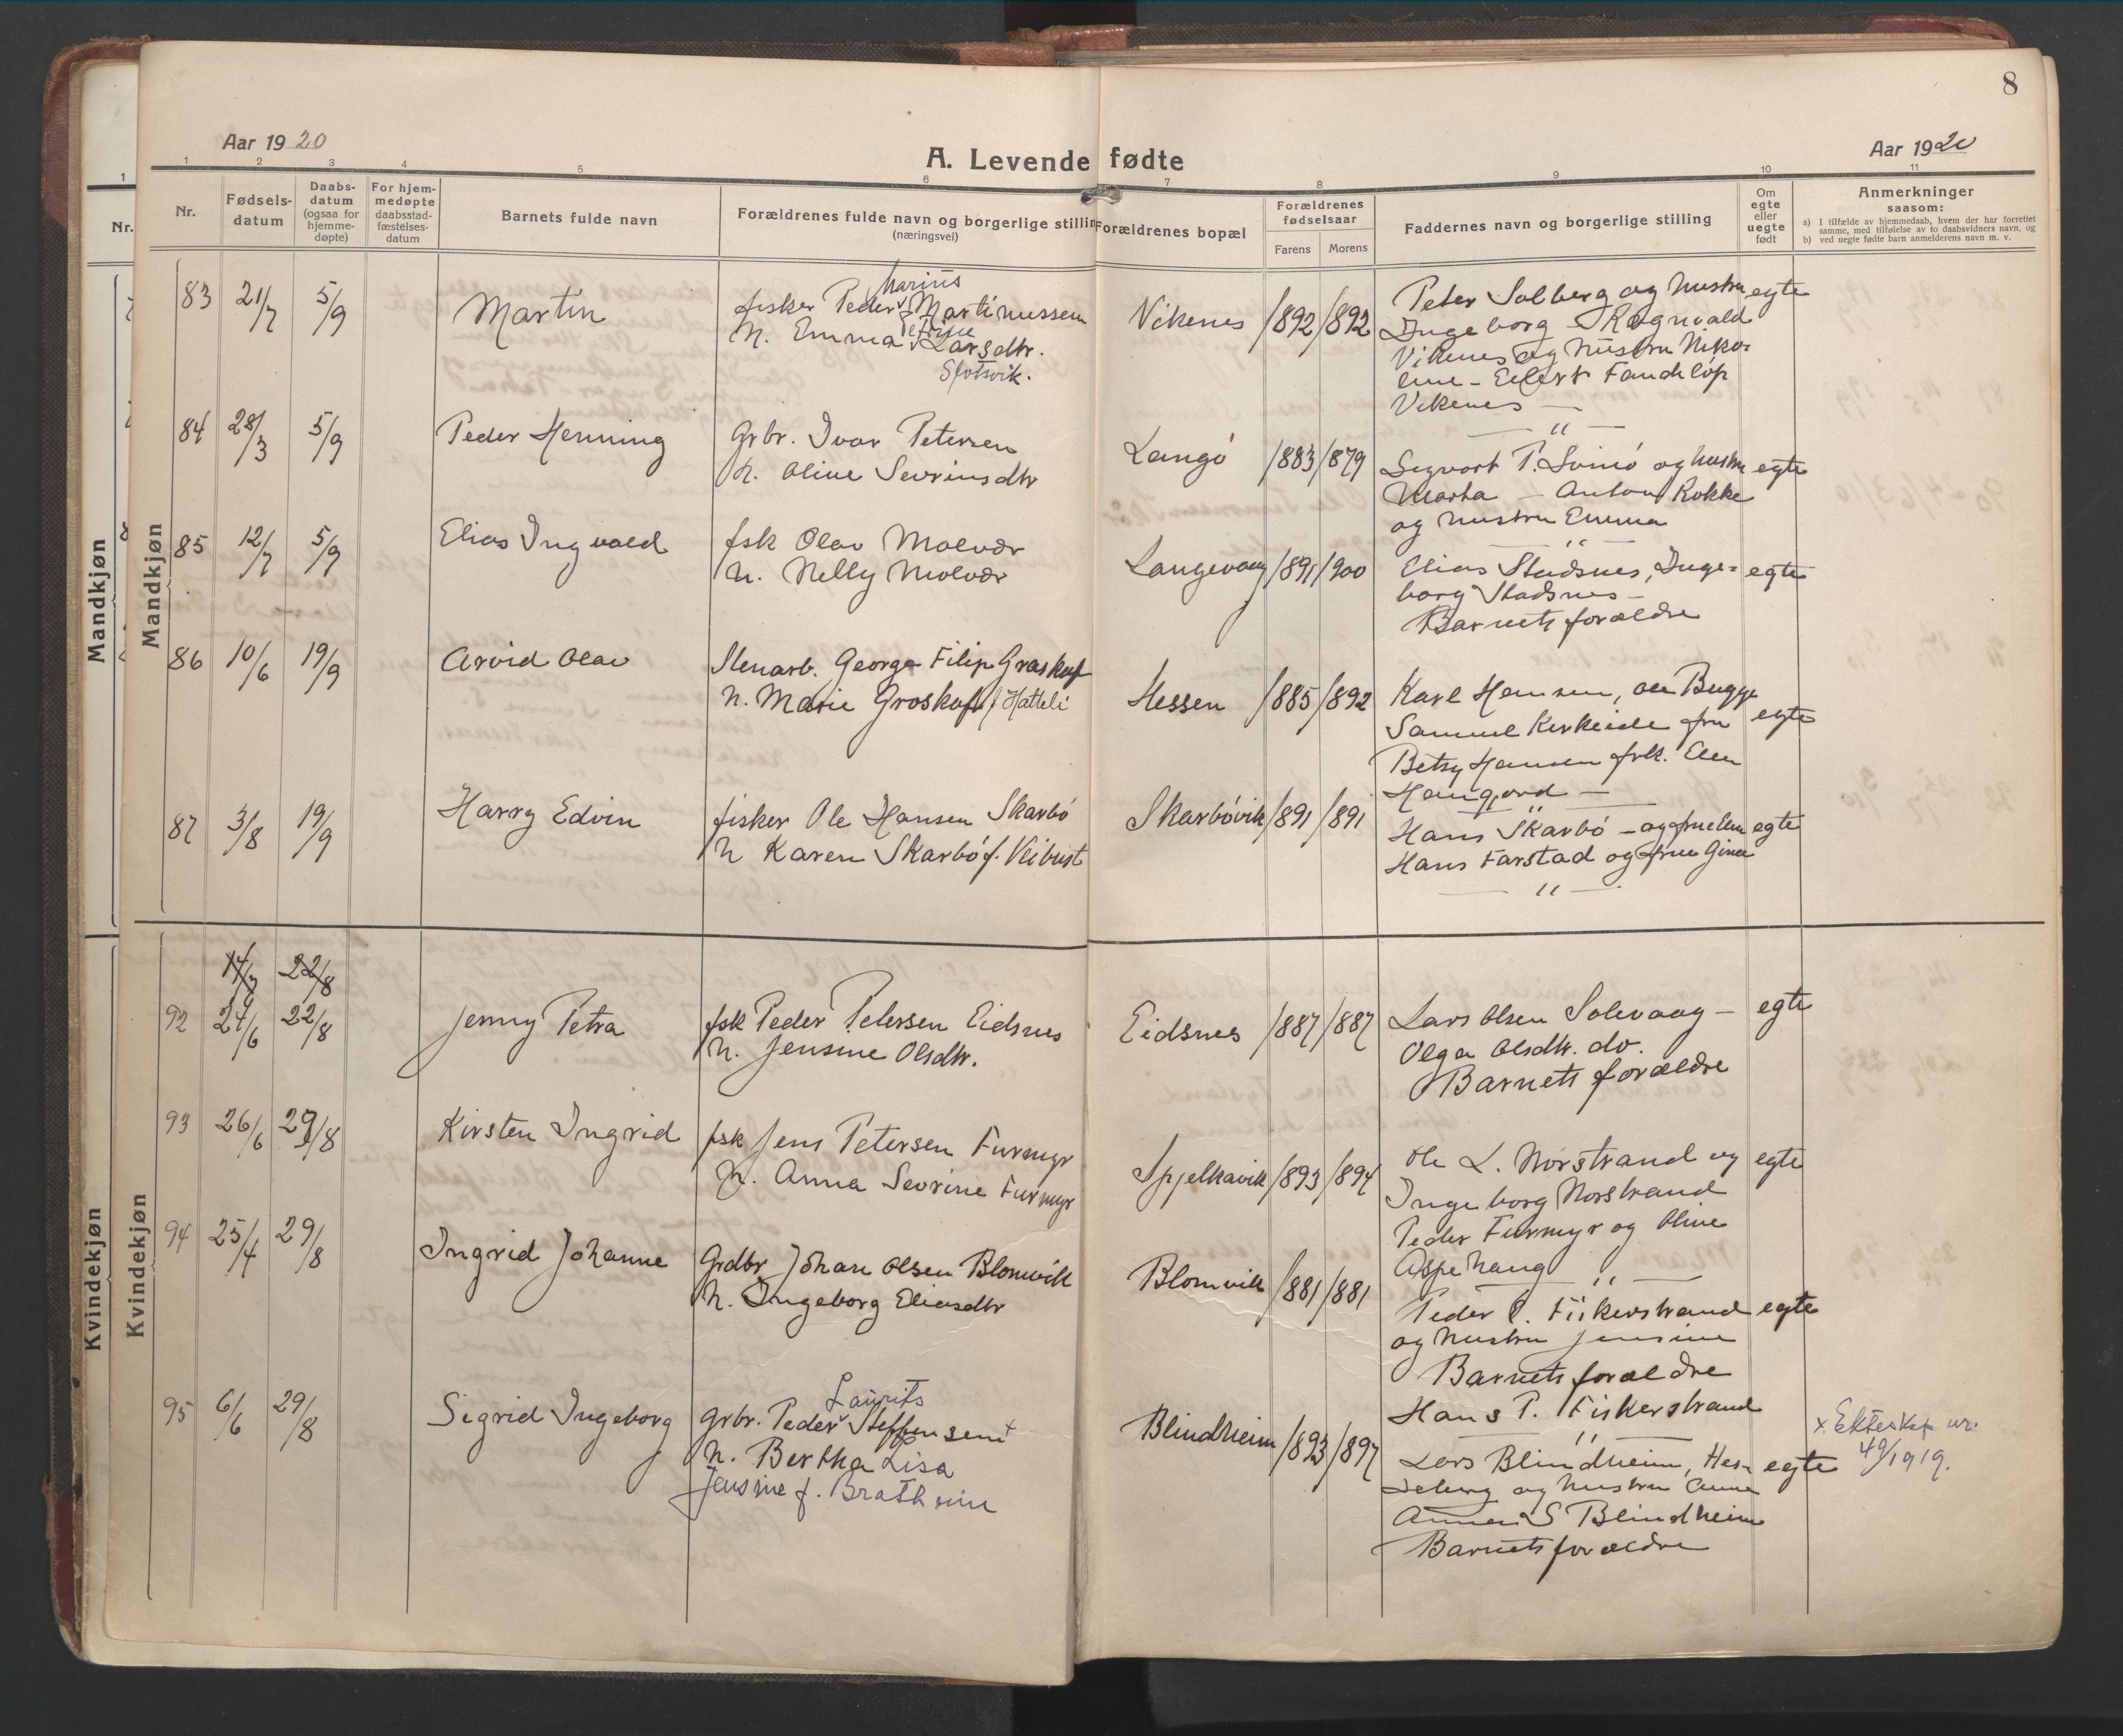 8
Aar 1920
A. Levende fødte
Aar 1920
1 2 3 4 5 6 7 8 9 10 11
Nr.
Fødsels-
datum
Daabs-
datum
(ogsaa for
hjemme-
døpte)
For hjem-
medøpte
daabsstad-
fæstelses-
datum
Barnets fulde navn
Forældrenes fulde navn og borgerlige stillin
(næringsvei)
Forældrenes bopæl
Forældrenes
fødselsaar
Farens
Morens
Faddernes navn og borgerlige stilling
Om
egte
eller
uegte
født
Anmerkninger
saasom:
a) I tilfælde av hjemmedaab, hvem der har forrettet
samme, med tilføielse av to daabsvidners navn, og
b) ved uegte fødte barn anmelderens navn m. v.
1
Nr.
Mandkjøn
Kvindekjøn
Mandkjøn
83 21/7 5/9
Martin
Marius
fisker Peder Martinussen
Petrine
h. Emma Larsdtr.
Slotsvik.
Vikenes 1892 1892
Peter Solberg og hustru
Ingeborg - Rognvald
Vikenes og hustru Niko-
line - Eilert Fandelöp
Vikenes —
— " —
egte
84 28/3 5/9
Peder Henning
Grbr. Ivar Petersen
h. Oline Sevrinsdtr
Langö 1883 1879
Sigvart P. Svinö og hustru
Marta - Anton Rokke
og hustru Emma
— " —
egte
85 12/7 5/9
Elias Ingvald
fsk Olav Molvær
h. Nelly Molvær
Langevaag 1891 1900
Elias Stadsnes, Inge-
borg Stadsnes -
Barnets forældre
egte
86 10/6 19/9
Arvid Olav
Stenarb. George Filip Groskopf
h. Marie Groskopf f. Hatteli
Hessen 1885 1892
Karl Hansen, Ole Bugge
Samuel Kirkeide fru
Betsy Hansen frk. Elen
Haugjord —
egte
87 3/8 19/9
Harry Edvin
fisker Ole Hansen Skarbö
h Karen Skarbö f. Veibust
Skarbövik 1891 1891
Hans Skarbö - og frue Elen
Hans Farstad og frue Gina
— " —
egte
Kvindekjøn
14/7 22/8
92 24/6 22/8
Jenny Petra
fsk Peder Petersen Eidsnes
h. Jensine Olsdtr.
Eidsnes 1887 1887
Lars Olsen Solevaag -
Olga Olsdtr. do.
Barnets forældre
egte
93 26/6 29/8
Kirsten Ingrid
fsk Jens Petersen Furmyr
h. Anna Sevrine Furmyr
Spjelkavik 1893 1894
Ole L. Norstrand og
Ingeborg Norstrand
Peder Furmyr og Oline
Aspehaug
— " —
egte
94 25/4 29/8
Ingrid Johanne
Grdbr Johan Olsen Blomvik
h. Ingeborg Eliasdtr
Blomvik 1881 1881
Peder P. Fiskerstrand
og hustru Jensine
Barnets forældre
Hans P. Fiskerstrand
— " —
egte
95 6/6 29/8
Sigrid Ingeborg
Laurits
Grbr. Peder Steffensen x
h. Bertha Lisa
Jensine f. Bratheim
Blindheim 1893 1897
Lars Blindheim,
og hustru Anne
Anna S Blindheim
Barnets forældre
egte
x Ekteskap nr.
49/1919.